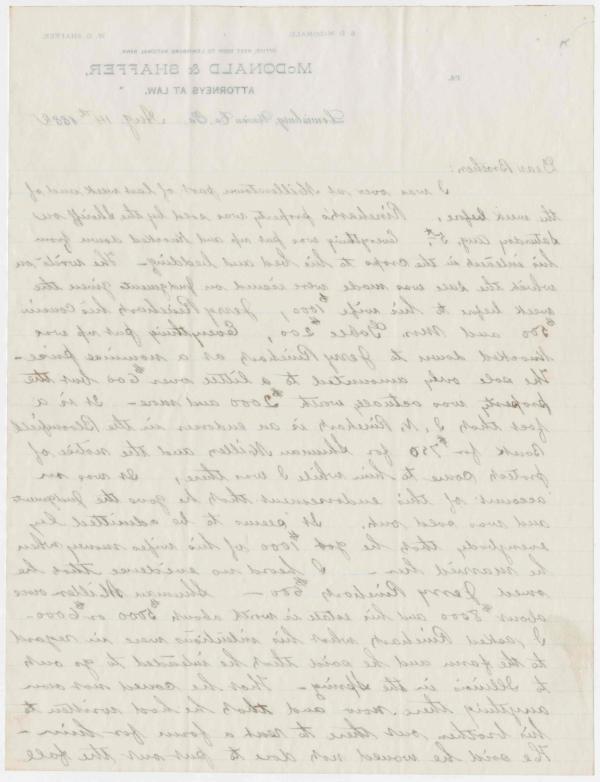 W. D. SHAFFER. S. D. McDONALD.
OFFICE, NEXT DOOR TO LEWISBURG NATIONAL BANK.
McDONALD & SHAFFER,
ATTORNEYS AT LAW.
PA.
Lewisburg, Union Co. Pa. Aug. 14th 188
Dear Brother:
I was over at Millerstown part of last week and of
the week before, Rinehart's property was sold by the Sheriff on
Saturday Aug. 5th. Everything was put up and knocked down from
his interest in the crops to his bed and bedding - The writs on
which the sale was made were issued on Judgments given the
week before to his wife $1000, Jerry Rinehart his cousin
$500 and Mrs. $200, Everything put up was
knocked down to Jerry Rinehart at a nominal price -
The sale only amounted to a little over $600 but the
property was actually worth $2000 and more - It is a
fact that J. N. Rinehart is an endorser in the Bloomfield
Bank for $750 for Shuman Miller and the notice of
protest came to him while I was there, It was on
account of this endorsement that he gave the Judgments
and was sold out. It seems to be admitted by
everybody that he got $1000 of his wifes money when
he married her - I heard no evidence that he
owed Jerry Rinehart $500 - Shuman Miller owes
about $8000 and his estate is worth about $5000 or $6000 -
I asked Rinehart what his intentions were in regard
to the farm and he said that he intended to go out
to Illinois in the Spring - That he owned
anything there now and that he had written to
his brother out there to rent a farm for him -
He said he would not dare to put out the fall